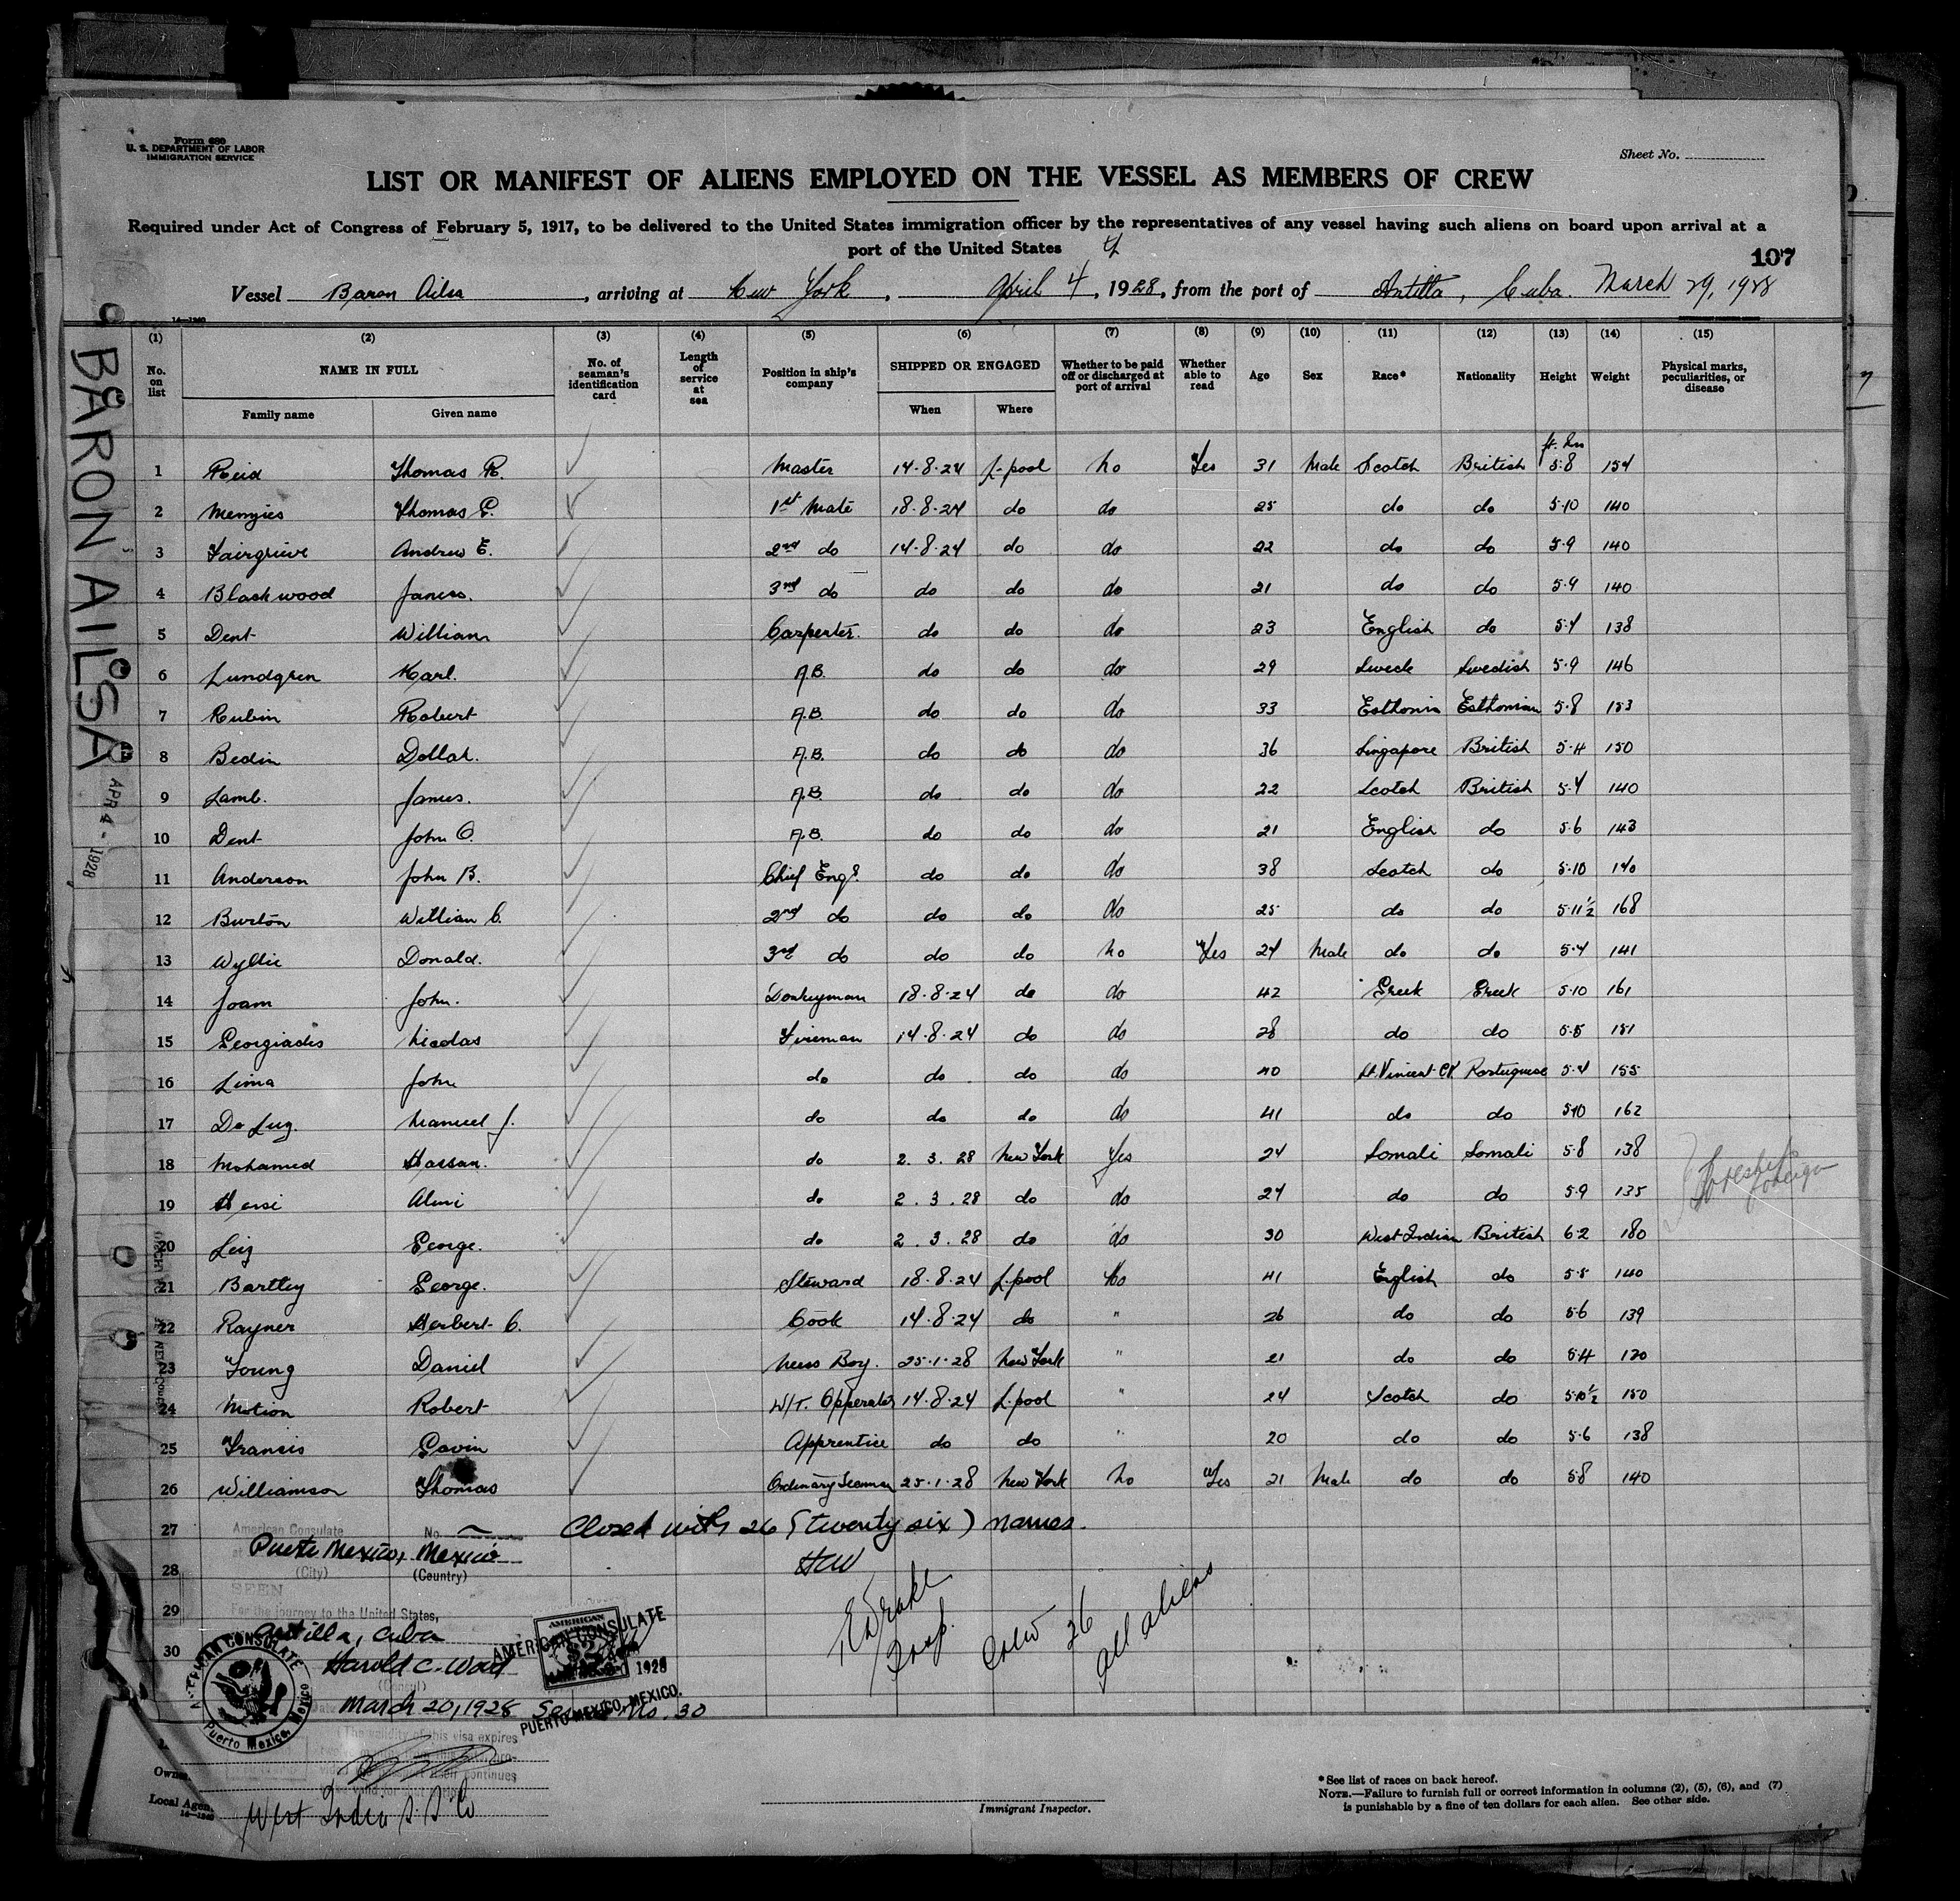 Form 680
U. S. DEPARTMENT OF LABOR
IMMIGRATION SERVICE
Sheet No.
LIST OR MANIFEST OF ALIENS EMPLOYED ON THE VESSEL AS MEMBERS OF CREW
Required under Act of Congress of February 5, 1917, to be delivered to the United States immigration officer by the representatives of any vessel having such aliens on board upon arrival at a
port of the United States
107
Vessel Baron Ailsa, arriving at New York, April 4, 1928, from the port of Antilla, Cuba. March 29, 1928
BARON AILSA
APR 4 - 1928
(1) (2) (3) (4) (5) (6) (7) (8) (9) (10) (11) (12) (13) (14) (15)
No. on list NAME IN FULL No. of seaman's identification card Length of service at sea Position in ship's company SHIPPED OR ENGAGED Whether to be paid off or discharged at port of arrival Whether able to read Age Sex Race* Nationality Height Weight Physical marks, peculiarities, or disease
Family name Given name When Where
ft. Ins
1 Reid Thomas R. Master 14-8-24 L-pool No Yes 31 Male Scotch British 5-8 154
2 Menzies Thomas G. 1st Mate 18-8-24 do do 25 do do 5-10 140
3 Fairgrieve Andrew E. 2nd do 14-8-24 do do 22 do do 5-9 140
4 Blackwood James. 3rd do do do do 21 do do 5-9 140
5 Dent William Carpenter. do do do 23 English do 5-4 138
6 Lundgren Karl. A.B. do do do 29 Swede Swedish 5-9 146
7 Rubin Robert A.B. do do do 33 Esthonia Esthonian 5-8 153
8 Bedin Dollah. A.B. do do do 36 Singapore British 5-4 150
9 Lamb. James. A.B. do do do 22 Scotch British 5-4 140
10 Dent John O. A.B. do do do 21 English do 5-6 143
11 Anderson John B. Chief Engr. do do do 38 Scotch do 5-10 140
12 Burton William C. 2nd do do do do 25 do do 5-11½ 168
13 Wyllie Donald. 3rd do do do No Yes 24 Male do do 5-4 141
14 Joam John. Donkeyman 18-8-24 do do 42 Greek Greek 5-10 161
15 Georgiadis Nicolas Fireman 14-8-24 do do 28 do do 5-5 151
16 Lima John do do do do 40 St. Vincent CV Portuguese 5-4 155
17 Da Luz. Manuel J. do do do do 41 do do 5-10 162
18 Mohamed Hassan. do 2. 3. 28 New York Yes 24 Somali Somali 5-8 138
19 Hersi Almi do 2. 3. 28 do do 24 do do 5-9 135
20 Leiz George. do 2. 3. 28 do do 30 West Indian British 6-2 180
21 Bartley George. Steward 18-8-24 L-pool No 41 English do 5-5 140
22 Rayner Herbert C. Cook 14-8-24 do " 26 do do 5-6 139
23 Young Daniel Mess Boy. 25-1-28 New York " 21 do do 5-4 120
24 Motion Robert W/T. Opperator 14-8-24 L-pool " 24 Scotch do 5-10½ 150
25 Francis Gavin Apprentice do do " 20 do do 5-6 138
26 Williamson Thomas Ordinary Seaman 25-1-28 New York No Yes 21 Male do do 5-8 140
27 American Consulate No. Closed with 26 (twenty six) names.
at Puerto Mexico, Mexico HCW
28 (City) (Country)
SEEN
29 For the journey to the United States,
Antilla, Cuba
30 Harold C. Wood
(Consul)
March 20, 1928 Service No. 30
AMERICAN CONSULATE
Puerto Mexico, Mexico
AMERICAN
AMERICAN CONSULATE
1928
PUERTO MEXICO, MEXICO.
EDrake
Insp.
Crew 26
all aliens
The validity of this visa expires
continues
Owner
Local Agent
West India S. S. Co
Immigrant Inspector.
*See list of races on back hereof.
NOTE.—Failure to furnish full or correct information in columns (2), (5), (6), and (7)
is punishable by a fine of ten dollars for each alien. See other side.